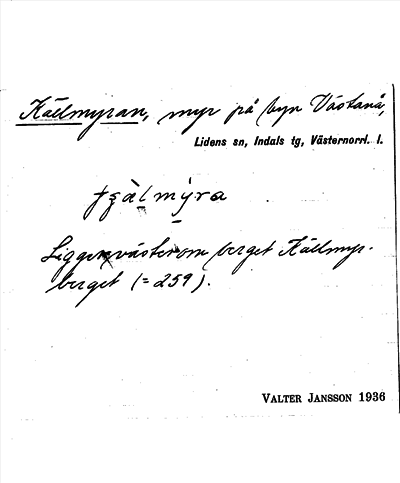 Källmyran, myr på byn Västanå,
Lidens sn, Indals tg, Västernorrl. l.
Ligger väster om berget Källmyr-
berget (= 259).
VALTER JANSSON 1936